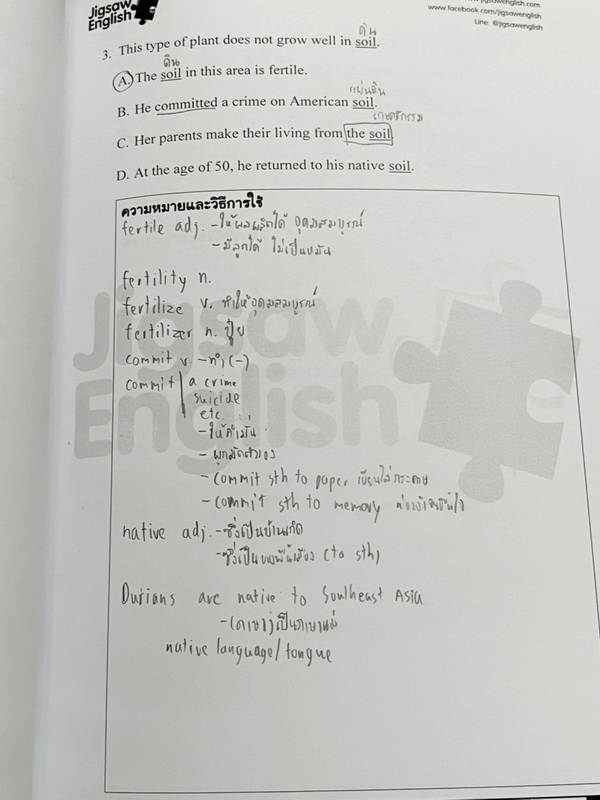 Jigsaw
English
www.facebook.com/jigsawenglish
Line: @jigsawenglish
ดิน
3. This type of plant does not grow well in soil.
ดิน
A. The soil in this area is fertile.
แผ่นดิน
B. He committed a crime on American soil.
เกษตรกรรม
C. Her parents make their living from the soil.
D. At the age of 50, he returned to his native soil.
ความหมายและวิธีการใช้
fertile adj. - ให้ผลผลิตได้ อุดมสมบูรณ์
- มีลูกได้ ไม่เป็นหมัน
fertility n.
fertilize v. ทำให้อุดมสมบูรณ์
fertilizer n. ปุ๋ย
commit v. - ทำ (-)
commit a crime
suicide
etc.
- ให้คำมั่น
- ผูกมัดตัวเอง
- commit sth to paper เขียนใส่กระดาษ
- commit sth to memory
native adj. - ซึ่งเป็นบ้านเกิด
- ซึ่งเป็นของพื้นเมือง (to sth)
Durians are native to Southeast Asia
- (ภาษา) เป็นภาษาแม่
native language/tongue
Jigsaw
English